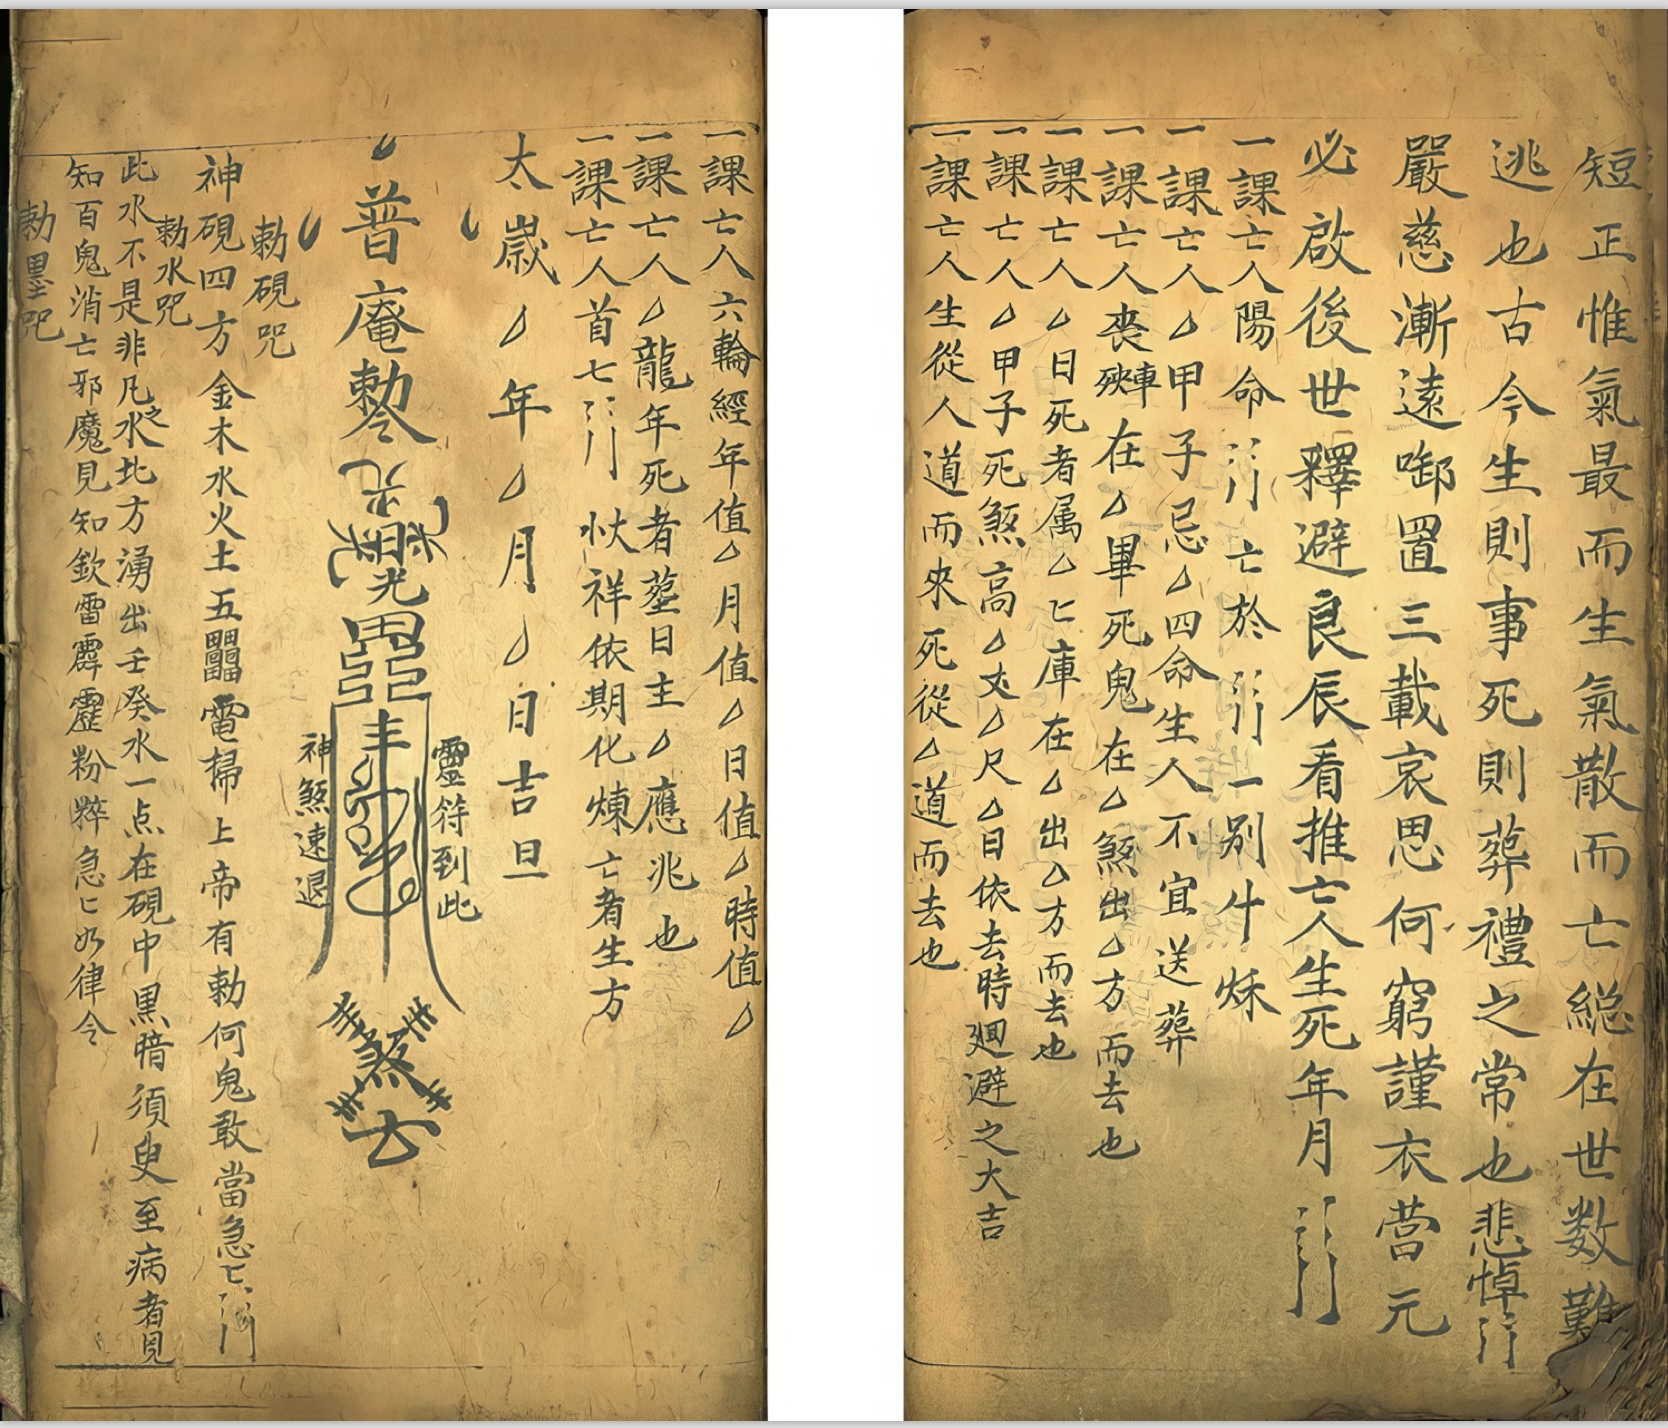 短正惟氣最而生氣散而亡総在世数難
逃也古今生則事死則葬禮之常也悲悼
嚴慈漸遠御置三載哀思何窮謹衣當元
必啟後世釋避良辰看推亡人生死年月
一課亡人陽命 亡於 一别卄穌
一課亡人△甲子忌△四命生人不宜送葬
一課亡人喪車殃在△畢死鬼在△煞出△方而去也
一課亡人△日死者属△匕庫在△出△方而去也
一課亡人△甲子死煞高△丈△尺△日依去時廻避之大吉
一課亡人生從人道而來死從△道而去也
一課亡人六輪經年值△月值△日值△時值△
一課亡人△龍年死者塟日主△應兆也
一課亡人首七 祥依期化煉亡者生方
太歲△年△月△日吉旦
普庵勅令
靈符到此
神煞速退
煞
勅硯咒
神硯四方金木水火土五 電掃上帝有勅何鬼敢當急匕
勅水咒
此水不是非凡之水北方湧出壬癸水一点在硯中黒暗須臾至病者見
知百鬼消亡邪魔見知欽雷霹靂粉粹急匕如律令
勅墨咒